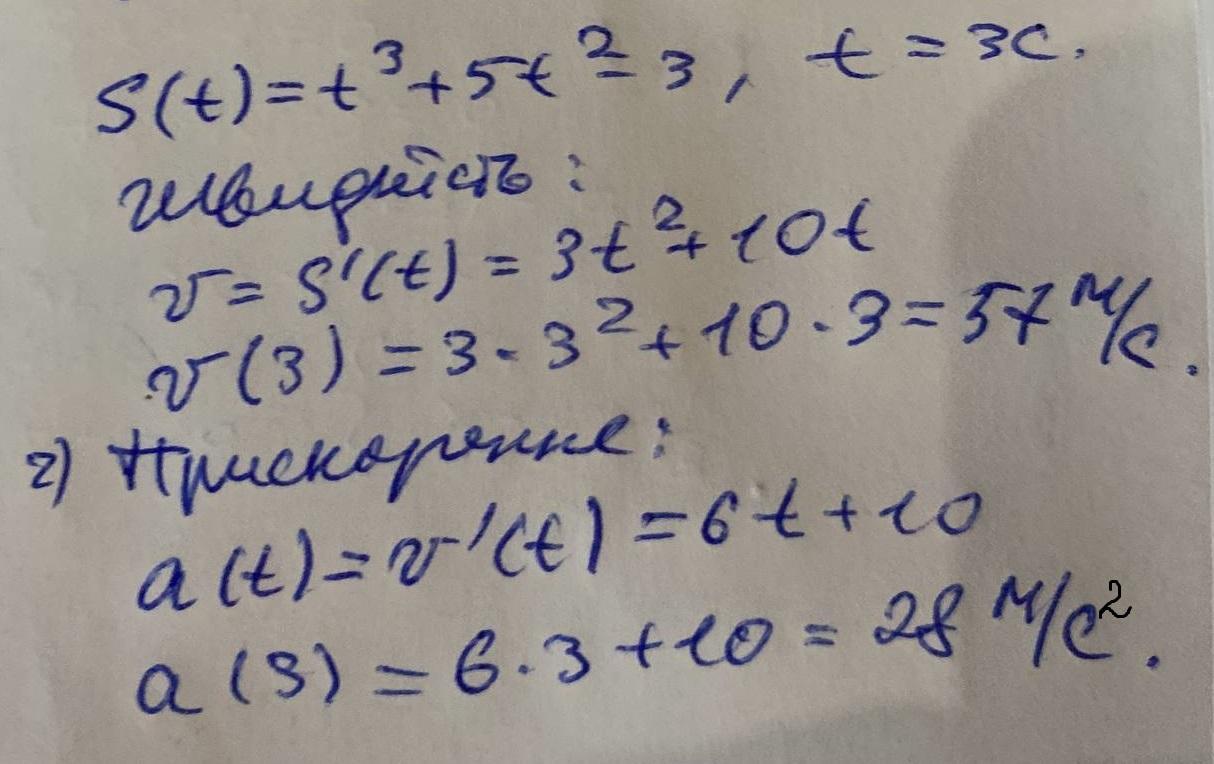 S(t) = t³ + 5t² - 3, t = 3с.
швидкість:
v = S'(t) = 3t² + 10t
v(3) = 3 · 3² + 10 · 3 = 57 м/с.
2) Прискорення:
a(t) = v'(t) = 6t + 10
a(3) = 6 · 3 + 10 = 28 м/с².